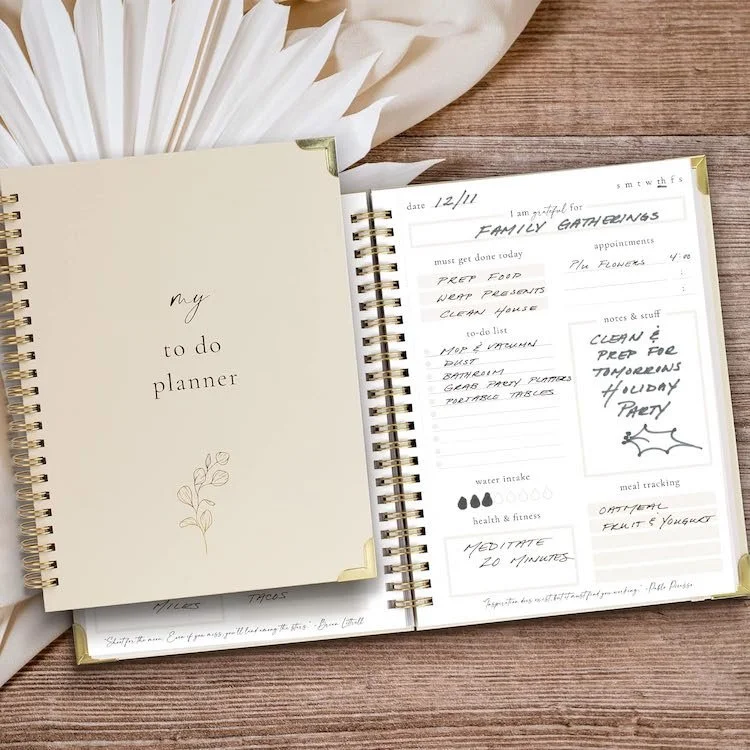 my
to do
planner
MILES
TACOS
"Shoot for the moon. Even if you miss, you'll land among the stars." - Brian Littrell
date 12/11
s m t w th f s
I am grateful for
FAMILY GATHERINGS
must get done today
PREP FOOD
WRAP PRESENTS
CLEAN HOUSE
appointments
P/U FLOWERS 4:00
:
:
to-do list
MOP & VACUUM
DUST
BATHROOM
GRAB PARTY PLATTERS
PORTABLE TABLES
notes & stuff
CLEAN &
PREP FOR
TOMORROWS
HOLIDAY
PARTY
water intake
health & fitness
MEDITATE
20 MINUTES
meal tracking
OATMEAL
FRUIT & YOUGURT
"Inspiration does exist but it must find you working." - Pablo Picasso